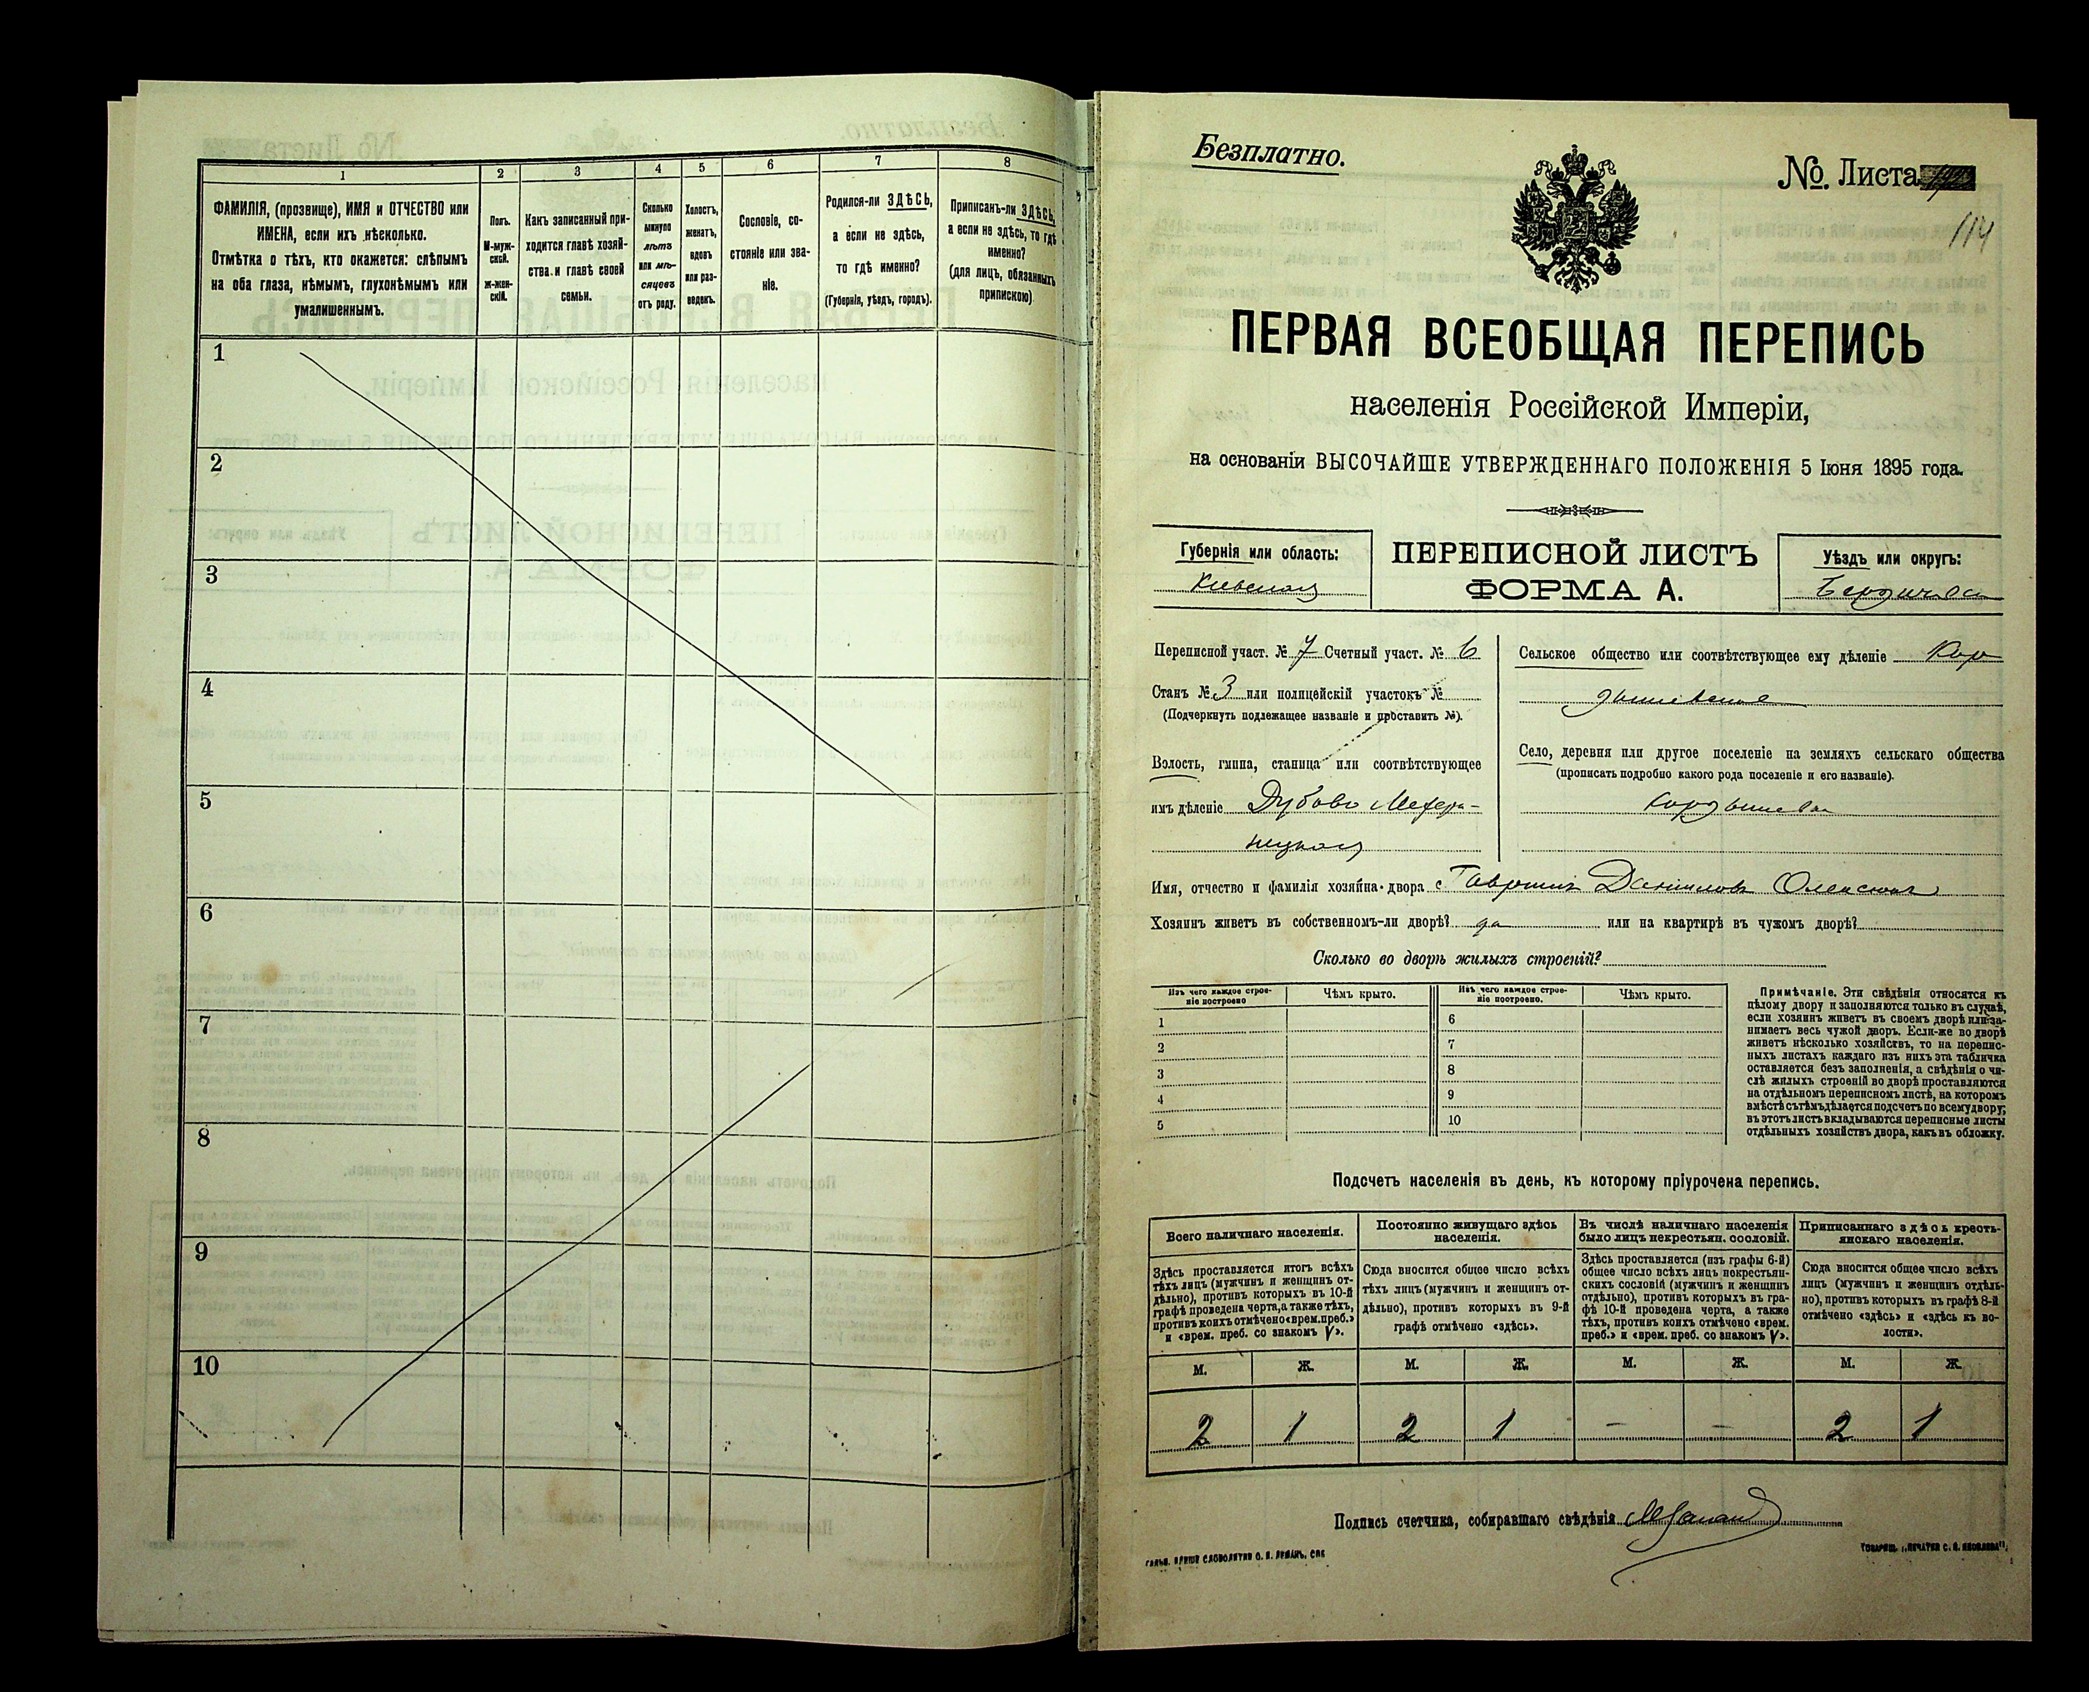 1
2
3
4
5
6
7
8
ФАМИЛІЯ, (прозвище), ИМЯ и ОТЧЕСТВО или
ИМЕНА, если ихъ нѣсколько.
Отмѣтка о тѣхъ, кто окажется: слѣпымъ
на оба глаза, нѣмымъ, глухонѣмымъ или
умалишеннымъ.
Полъ.
М-муж-
ской.
ж-жен-
скій.
Какъ записанный при-
ходится главѣ хозяй-
ства и главѣ своей
семьи.
Сколько
минуло
лѣтъ
или мѣ-
сяцевъ
отъ роду.
Холостъ,
женатъ,
вдовъ
или раз-
веденъ.
Сословіе, со-
стояніе или зва-
ніе.
Родился-ли ЗДѢСЬ,
а если не здѣсь,
то гдѣ именно?
(Губернія, уѣздъ, городъ).
Приписанъ-ли ЗДѢСЬ,
а если не здѣсь, то гдѣ
именно?
(для лицъ, обязанныхъ
припискою)
1
2
3
4
5
6
7
8
9
10
Безплатно.
№. Листа
114
ПЕРВАЯ ВСЕОБЩАЯ ПЕРЕПИСЬ
населенія Россійской Имперіи,
на основаніи ВЫСОЧАЙШЕ УТВЕРЖДЕННАГО ПОЛОЖЕНІЯ 5 Іюня 1895 года.
Губернія или область:
Кіевская
ПЕРЕПИСНОЙ ЛИСТЪ
ФОРМА А.
Уѣздъ или округъ:
Бердичевск
Переписной участ. № 7 Счетный участ. № 6
Станъ № 3 или полицейскій участокъ №
(Подчеркнуть подлежащее названіе и проставить №).
Волость, гмина, станица или соотвѣтствующее
имъ дѣленіе Дубово Махари-
нецкая
Сельское общество или соотвѣтствующее ему дѣленіе Кор
дышевское
Село, деревня или другое поселеніе на земляхъ сельскаго общества
(прописать подробно какого рода поселеніе и его названіе).
Кордышевка
Имя, отчество и фамилія хозяйна двора Данилов
Хозяинъ живетъ въ собственномъ-ли дворѣ? да или на квартирѣ въ чужомъ дворѣ?
Сколько во дворѣ жилыхъ строеній?
Изъ чего каждое строе-
ніе построено
Чѣмъ крыто.
Изъ чего каждое строе-
ніе построено.
Чѣмъ крыто.
1
2
3
4
5
6
7
8
9
10
Примѣчаніе. Эти свѣдѣнія относятся къ
цѣлому двору и заполняются только въ случаѣ,
если хозяинъ живетъ въ своемъ дворѣ или за-
нимаетъ весь чужой дворъ. Если-же во дворѣ
живетъ нѣсколько хозяйствъ, то на перепис-
ныхъ листахъ каждаго изъ нихъ эта табличка
оставляется безъ заполненія, а свѣдѣнія о чи-
слѣ жилыхъ строеній во дворѣ проставляются
на отдѣльномъ переписномъ листѣ, на которомъ
вмѣстѣ съ тѣмъ дѣлается подсчетъ по всему двору;
въ этотъ листъ вкладываются переписные листы
отдѣльныхъ хозяйствъ двора, какъ въ обложку.
Подсчетъ населенія въ день, къ которому пріурочена перепись.
Всего наличнаго населенія.
Постоянно живущаго здѣсь
населенія.
Въ числѣ наличнаго населенія
было лицъ некрестьян. сословій.
Приписаннаго здѣсь кресть-
янскаго населенія.
Здѣсь проставляется итогъ всѣхъ
тѣхъ лицъ (мужчинъ и женщинъ от-
дѣльно), противъ которыхъ въ 10-й
графѣ проведена черта, а также тѣхъ,
противъ коихъ отмѣчено «врем. преб.»
и «врем. преб. со знакомъ V».
Сюда вносится общее число всѣхъ
тѣхъ лицъ (мужчинъ и женщинъ от-
дѣльно), противъ которыхъ въ 9-й
графѣ отмѣчено «здѣсь».
Здѣсь проставляется (изъ графы 6-й)
общее число всѣхъ лицъ некрестьян-
скихъ сословій (мужчинъ и женщинъ
отдѣльно), противъ которыхъ въ гра-
фѣ 10-й проведена черта, а также
тѣхъ, противъ коихъ отмѣчено «врем.
преб.» и «врем. преб. со знакомъ V».
Сюда вносится общее число всѣхъ
лицъ (мужчинъ и женщинъ отдѣль-
но), противъ которыхъ въ графѣ 8-й
отмѣчено «здѣсь» и «здѣсь къ во-
лости».
М. Ж. М. Ж. М. Ж. М. Ж.
2 1 2 1 — — 2 1
Подпись счетчика, собиравшаго свѣдѣнія
ТОВАРИЩ. „ПЕЧАТНЯ С. П. ЯКОВЛЕВА“.